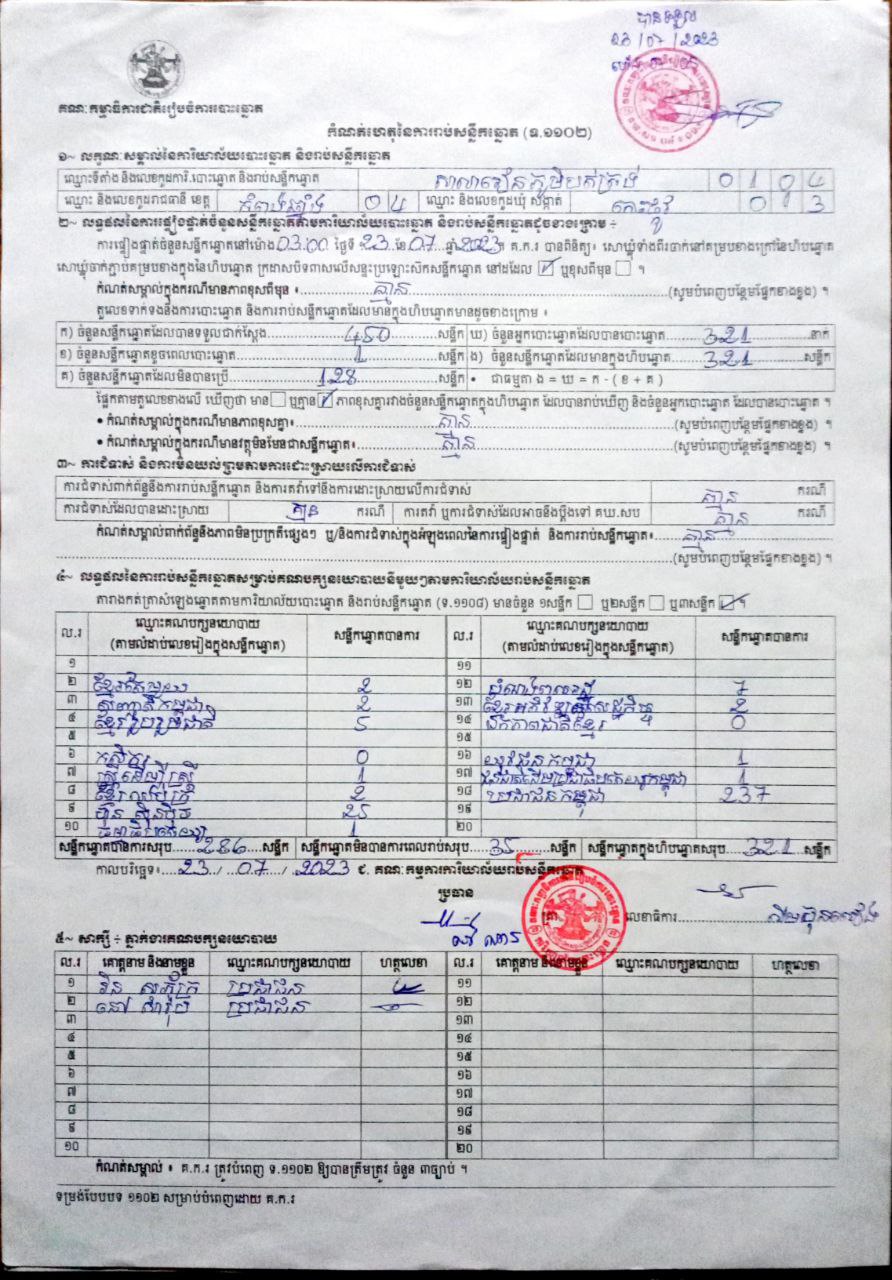 បានទទួល
23/07/2023
គណៈកម្មាធិការជាតិរៀបចំការបោះឆ្នោត
កំណត់ហេតុនៃការរាប់សន្លឹកឆ្នោត (ទ.១១០២)
១~ លក្ខណៈសម្គាល់នៃការិយាល័យបោះឆ្នោត និងរាប់សន្លឹកឆ្នោត
ឈ្មោះទីតាំង និងលេខកូដការិ.បោះឆ្នោត និងរាប់សន្លឹកឆ្នោត សាលារៀនភូមិបត់ត្រង់ 0 1 0 4
ឈ្មោះ និងលេខកូដរាជធានី ខេត្ត កំពង់ឆ្នាំង 0 4 ឈ្មោះ និងលេខកូដឃុំ សង្កាត់ 0 3
២~ លទ្ធផលនៃការផ្ទៀងផ្ទាត់ចំនួនសន្លឹកឆ្នោតតាមការិយាល័យបោះឆ្នោត និងរាប់សន្លឹកឆ្នោតដូចខាងក្រោម ÷
ការផ្ទៀងផ្ទាត់ចំនួនសន្លឹកឆ្នោតនៅម៉ោង 03:00 ថ្ងៃទី 23 ខែ 07 ឆ្នាំ 2023។ គ.ក.រ បានពិនិត្យ៖ សោឃ្មុំទាំងពីរចាក់នៅគម្របខាងក្រៅនៃហិបឆ្នោត
សោឃ្មុំចាក់ភ្ជាប់គម្របខាងក្នុងនៃហិបឆ្នោត ក្រដាសបិទពាសលើសន្ទះប្រឡោះស៊កសន្លឹកឆ្នោត នៅដដែល ☑ ឬខុសពីមុន ☐ ។
កំណត់សម្គាល់ក្នុងករណីមានភាពខុសពីមុន ៖ គ្មាន (សូមបំពេញបន្ថែមផ្នែកខាងខ្នង) ។
តួលេខទាក់ទងនឹងការបោះឆ្នោត និងការរាប់សន្លឹកឆ្នោតដែលមានក្នុងហិបឆ្នោតមានដូចខាងក្រោម ៖
ក) ចំនួនសន្លឹកឆ្នោតដែលបានទទួលជាក់ស្តែង 450 សន្លឹក ឃ) ចំនួនអ្នកបោះឆ្នោតដែលបានបោះឆ្នោត 321 នាក់
ខ) ចំនួនសន្លឹកឆ្នោតខូចពេលបោះឆ្នោត 1 សន្លឹក ង) ចំនួនសន្លឹកឆ្នោតដែលមានក្នុងហិបឆ្នោត 321 សន្លឹក
គ) ចំនួនសន្លឹកឆ្នោតដែលមិនបានប្រើ 128 សន្លឹក • ជាធម្មតា ង = ឃ = ក - ( ខ + គ )
ផ្អែកតាមតួលេខខាងលើ ឃើញថា មាន ☐ ឬគ្មាន ☑ ភាពខុសគ្នារវាងចំនួនសន្លឹកឆ្នោតក្នុងហិបឆ្នោត ដែលបានរាប់ឃើញ និងចំនួនអ្នកបោះឆ្នោត ដែលបានបោះឆ្នោត ។
• កំណត់សម្គាល់ក្នុងករណីមានភាពខុសគ្នា៖ គ្មាន (សូមបំពេញបន្ថែមផ្នែកខាងខ្នង) ។
• កំណត់សម្គាល់ក្នុងករណីមានវត្ថុមិនមែនជាសន្លឹកឆ្នោត៖ គ្មាន (សូមបំពេញបន្ថែមផ្នែកខាងខ្នង) ។
៣~ ការជំទាស់ និងការមិនយល់ព្រមតាមការដោះស្រាយលើការជំទាស់
ការជំទាស់ពាក់ព័ន្ធនឹងការរាប់សន្លឹកឆ្នោត និងការតវ៉ាទៅនឹងការដោះស្រាយលើការជំទាស់ គ្មាន ករណី
ការជំទាស់ដែលបានដោះស្រាយ គ្មាន ករណី ការតវ៉ា ឬការជំទាស់ដែលអាចនឹងប្តឹងទៅ គឃ.សប គ្មាន ករណី
កំណត់សម្គាល់ពាក់ព័ន្ធនឹងភាពមិនប្រក្រតីផ្សេងៗ ឬ/និងការជំទាស់ក្នុងអំឡុងពេលនៃការផ្ទៀងផ្ទាត់ និងការរាប់សន្លឹកឆ្នោត៖ គ្មាន
(សូមបំពេញបន្ថែមផ្នែកខាងខ្នង) ។
៤~ លទ្ធផលនៃការរាប់សន្លឹកឆ្នោតសម្រាប់គណបក្សនយោបាយនីមួយៗតាមការិយាល័យរាប់សន្លឹកឆ្នោត
តារាងកត់ត្រាសំឡេងឆ្នោតតាមការិយាល័យបោះឆ្នោត និងរាប់សន្លឹកឆ្នោត (ទ.១១០៨) មានចំនួន ១សន្លឹក ☐ ឬ២សន្លឹក ☐ ឬ៣សន្លឹក ☑ ។
ល.រ ឈ្មោះគណបក្សនយោបាយ (តាមលំដាប់លេខរៀងក្នុងសន្លឹកឆ្នោត) សន្លឹកឆ្នោតបានការ ល.រ ឈ្មោះគណបក្សនយោបាយ (តាមលំដាប់លេខរៀងក្នុងសន្លឹកឆ្នោត) សន្លឹកឆ្នោតបានការ
១ ១១
២ ខ្មែរតែមួយ 2 ១២ 7
៣ សញ្ជាតិកម្ពុជា 2 ១៣ ខ្មែរអភិវឌ្ឍន៍សេដ្ឋកិច្ច 2
៤ ខ្មែររួបរួមជាតិ 5 ១៤ ឯកភាពជាតិខ្មែរ 0
៥ ១៥
៦ កសិករ 0 ១៦ យុវជនកម្ពុជា 1
៧ ស្ត្រីដើម្បីស្ត្រី 1 ១៧ 1
៨ 2 ១៨ ប្រជាជនកម្ពុជា 237
៩ ហ៊្វុនស៊ិនប៉ិច 25 ១៩
១០ ធម្មាធិបតេយ្យ 1 ២០
សន្លឹកឆ្នោតបានការសរុប 286 សន្លឹក សន្លឹកឆ្នោតមិនបានការពេលរាប់សរុប 35 សន្លឹក សន្លឹកឆ្នោតក្នុងហិបឆ្នោតសរុប 321 សន្លឹក
កាលបរិច្ឆេទ៖ 23 / 07 / 2023 ជ. គណៈកម្មការការិយាល័យរាប់សន្លឹកឆ្នោត
ប្រធាន
លេខាធិការ
៥~ សាក្សី ÷ ភ្នាក់ងារគណបក្សនយោបាយ
ល.រ គោត្តនាម និងនាមខ្លួន ឈ្មោះគណបក្សនយោបាយ ហត្ថលេខា ល.រ គោត្តនាម និងនាមខ្លួន ឈ្មោះគណបក្សនយោបាយ ហត្ថលេខា
១ ប្រជាជន ១១
២ ប្រជាជន ១២
៣ ១៣
៤ ១៤
៥ ១៥
៦ ១៦
៧ ១៧
៨ ១៨
៩ ១៩
១០ ២០
កំណត់សម្គាល់ ៖ គ.ក.រ ត្រូវបំពេញ ទ.១១០២ ឱ្យបានត្រឹមត្រូវ ចំនួន ៣ច្បាប់ ។
ទម្រង់បែបបទ ១១០២ សម្រាប់បំពេញដោយ គ.ក.រ